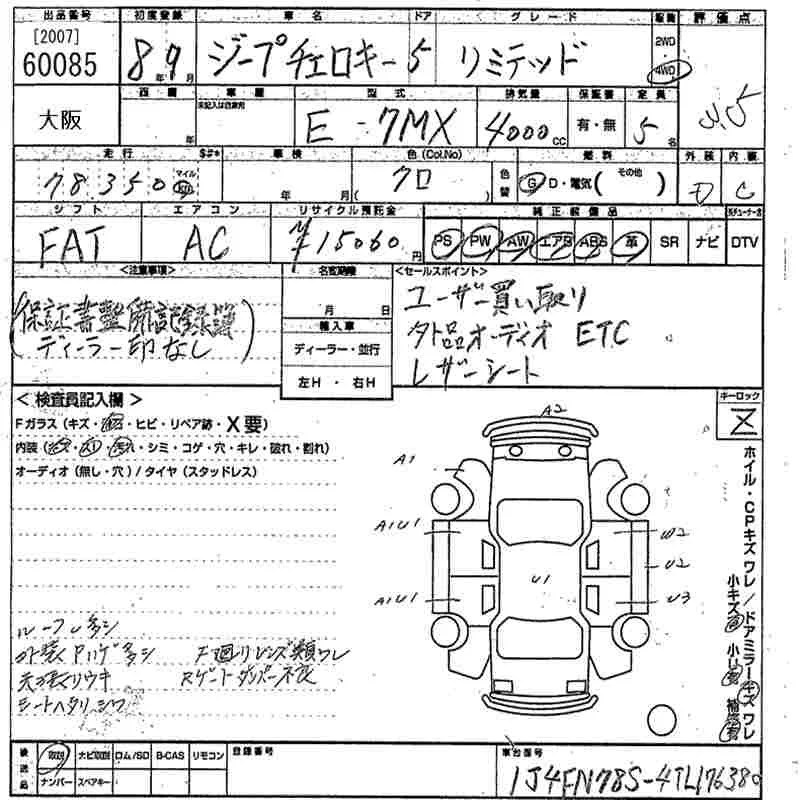 出品番号 初度登録 車名 ドア グレード 駆動 評価点
[2007]
60085 8年9月 ジープチェロキー 5 リミテッド 2WD 4WD 3.5
大阪 西暦 年 車歴 未記入は自家用 型式 E - 7MX 排気量 4000cc 保証書 有・無 定員 5名
走行 $#* 車検 色(Col.No) 燃料 外装 内装
78,350 マイル km 年 月 クロ ( ) 色替 G D・電気( その他 ) D C
シフト エアコン リサイクル預託金 純正装備品
FAT AC ¥15060円 PS PW AW エアB ABS 革 SR ナビ DTV
<注意事項> 名変期限 <セールスポイント>
(保証書整備記録簿 月 日 ユーザー買い取り
ディーラー印なし) 輸入車 外品オーディオ ETC
ディーラー・並行 レザーシート
左H ・ 右H
<検査員記入欄> キーロック
Fガラス(キズ・飛石・ヒビ・リペア跡・X要)
内装(キズ・スリ・汚れ・シミ・コゲ・穴・キレ・破れ・割れ)
オーディオ(無し・穴)/タイヤ(スタッドレス)
A2
A1
A1U1 W2
U2
A1U1 U1 U3
ホイル・CPキズ ワレ/ドアミラーキズ ワレ
小キズ 小凹 補修
ルーフU多シ
外装Pハゲ多シ F廻りレンズ類ワレ
天張リウキ Rゲートダンパー不良
シートヘタリ シワ
後送品 取説 ナビ取説 ロム/SD B-CAS リモコン 登録番号 車台番号
ナンバー スペアキー 1J4FN78S-4TL176380